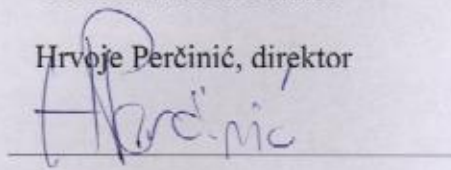 Hrvoje Perčinić, direktor
HPerčinić